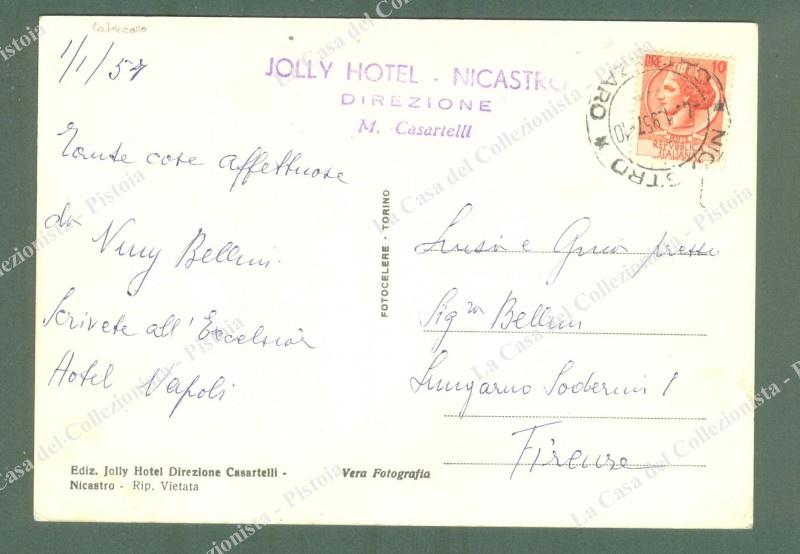 1/1/57
JOLLY HOTEL - NICASTRO
DIREZIONE
M. Casartelli
LIRE 10
REPUBBLICA
ITALIANA
NICASTRO
Tante cose affettuose
da Nury Bellini
Scrivete all'Excelsior
Hotel Napoli
FOTOCELERE - TORINO
Luisa e presso
Sig.ra Bellini
Lungarno Soderini 1
Firenze
Ediz. Jolly Hotel Direzione Casartelli -
Nicastro - Rip. Vietata
Vera Fotografia
La Casa del Collezionista - Pistoia